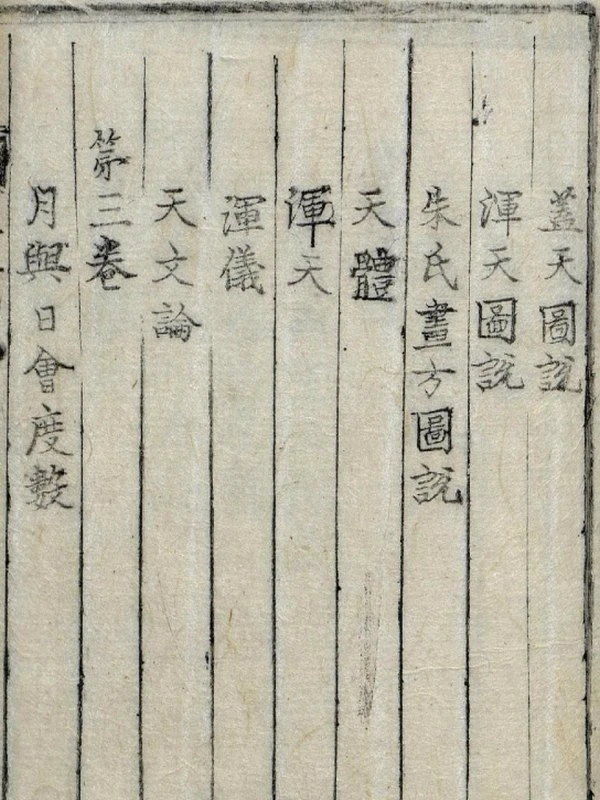 蓋天圖說
渾天圖說
朱氏畫方圖說
天體
渾天
渾儀
天文論
第三卷
月與日會度數